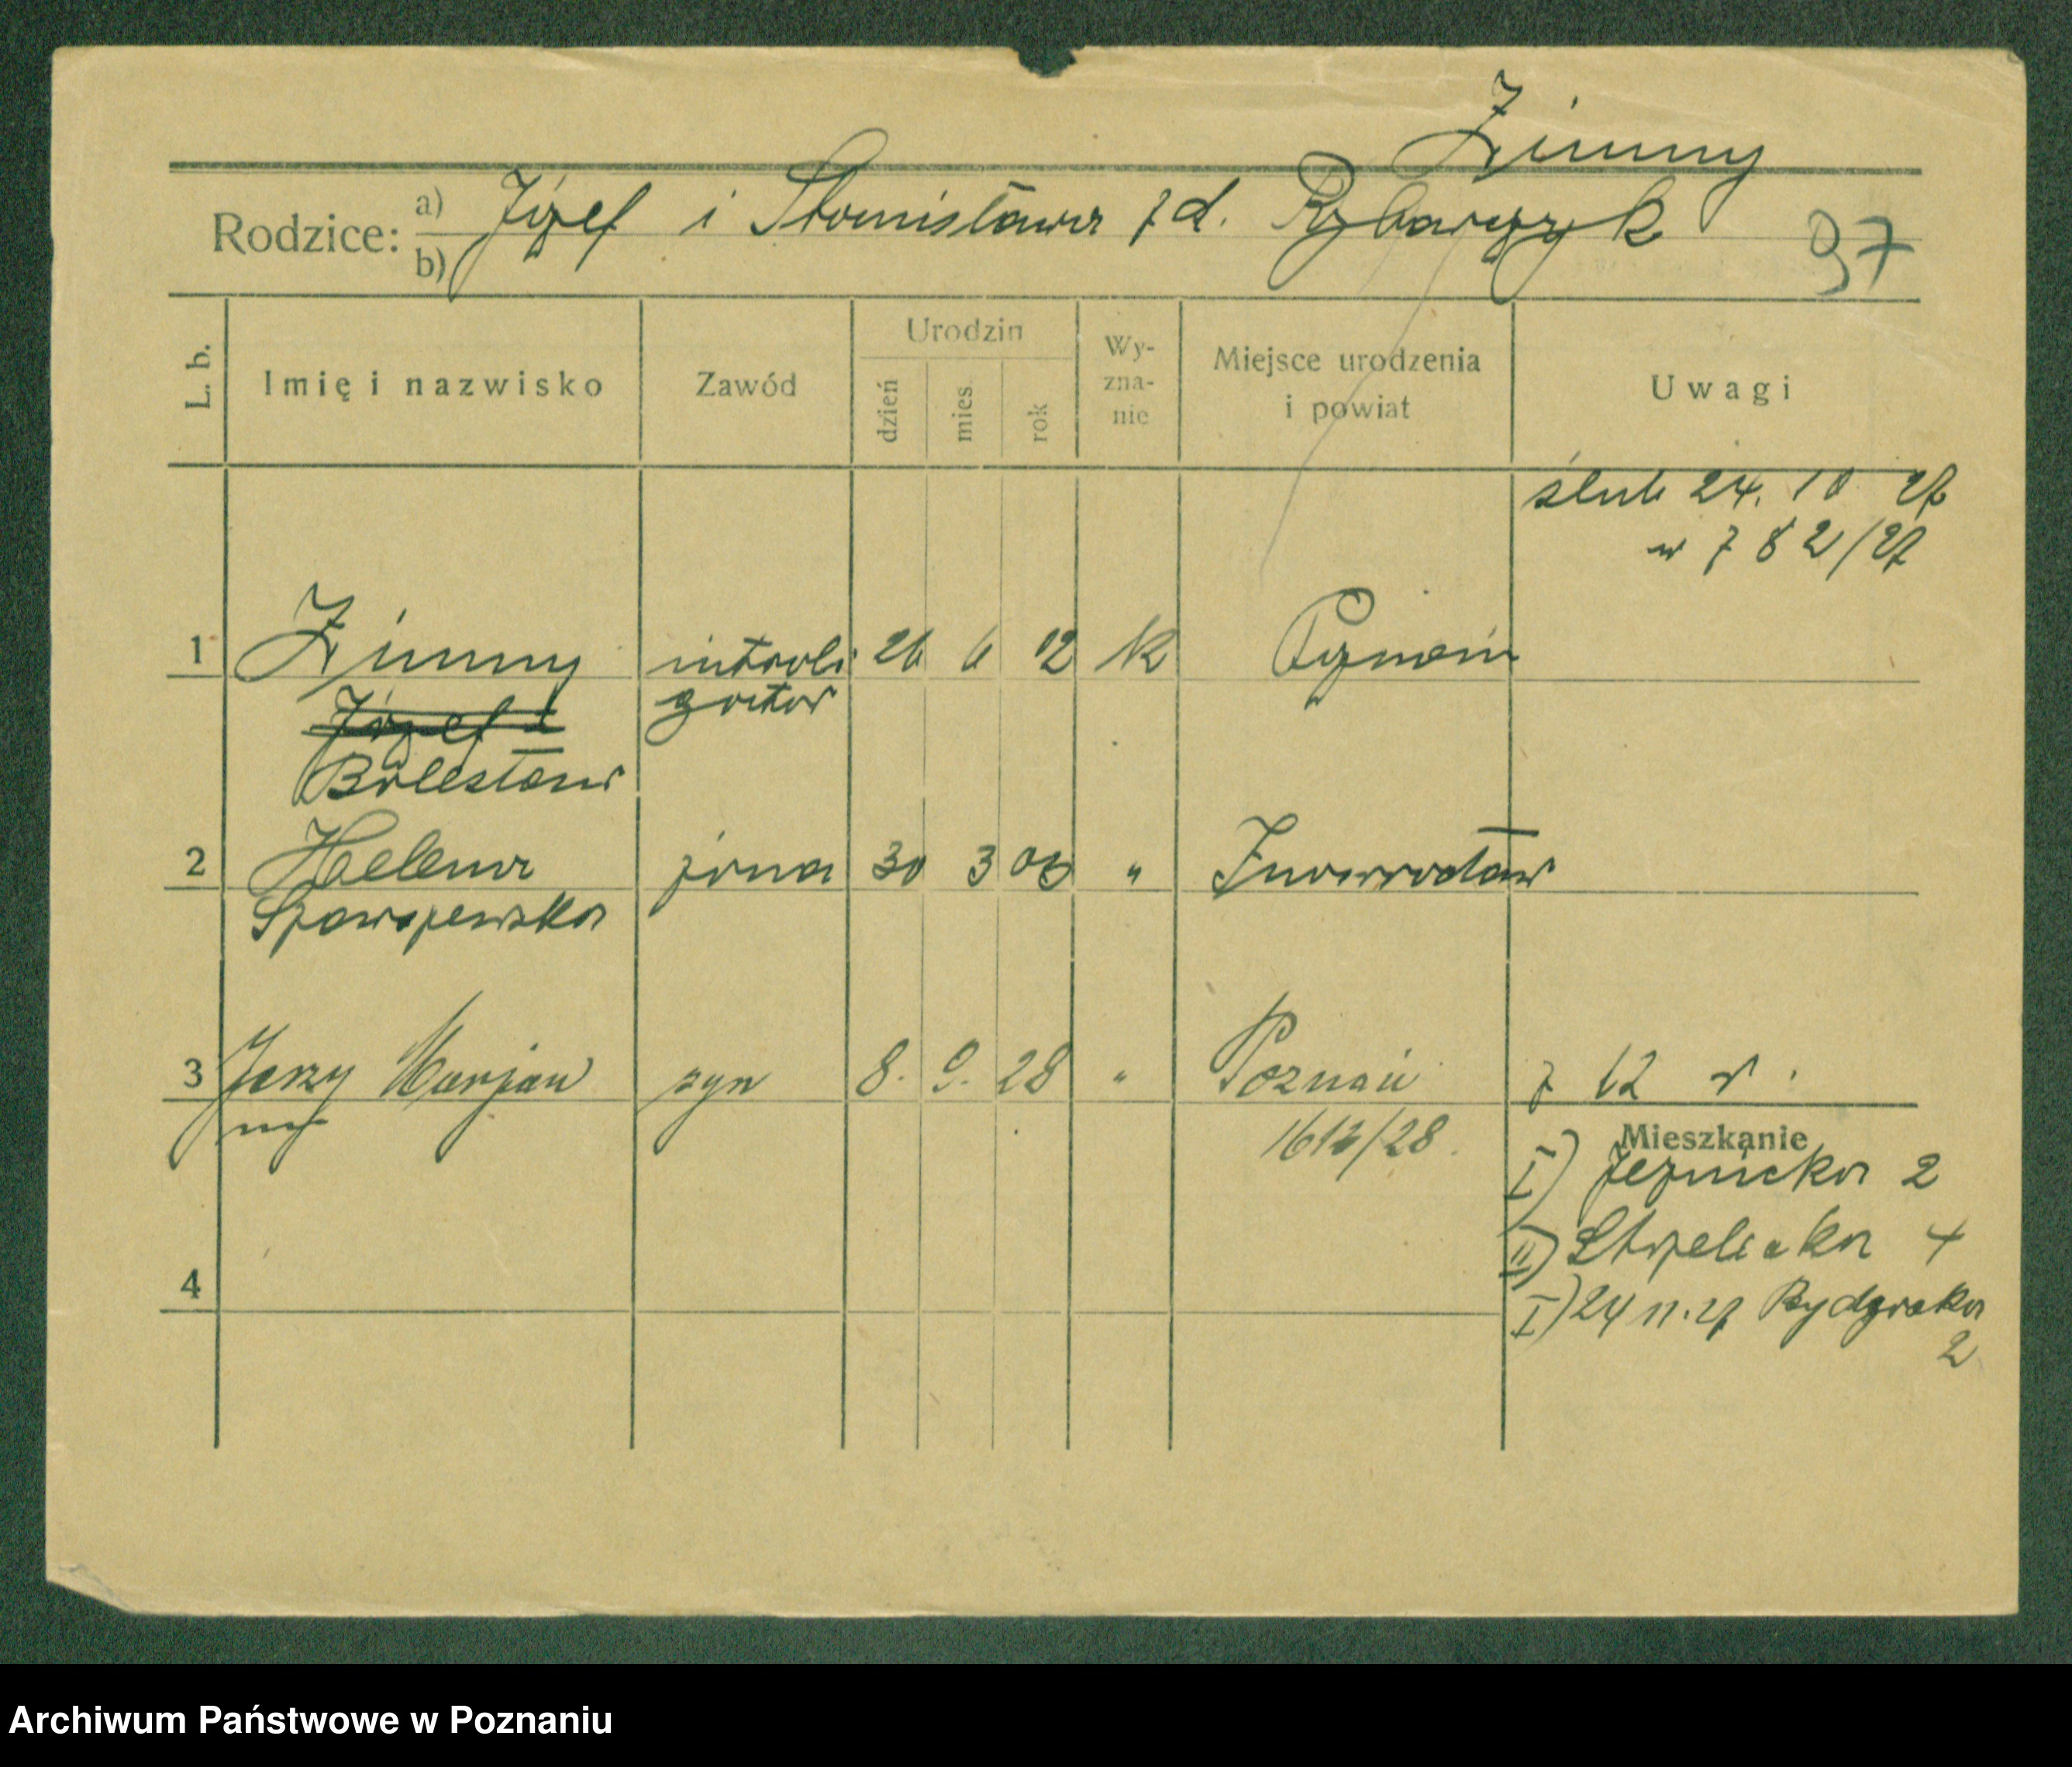 Zimny
Rodzice: a) b) Józef i Stanisława z d. Rybarczyk
97
L. b. Imię i nazwisko Zawód Urodzin dzień mies. rok Wy-zna-nie Miejsce urodzenia i powiat Uwagi
ślub 24. 10 27
782/27
1 Zimny introli 26 6 02 k Poznań
Józef gator
Bolesław
2 Helena żona 30 3 03 " Inowrocław
3 Jerzy Marjan syn 8. 9. 28 " Poznań z 12 r.
1612/28.
Mieszkanie
I) Jezuicka 2
II) Strzelecka 4
4
I) 24 11. 27 Bydgoska
2
Archiwum Państwowe w Poznaniu